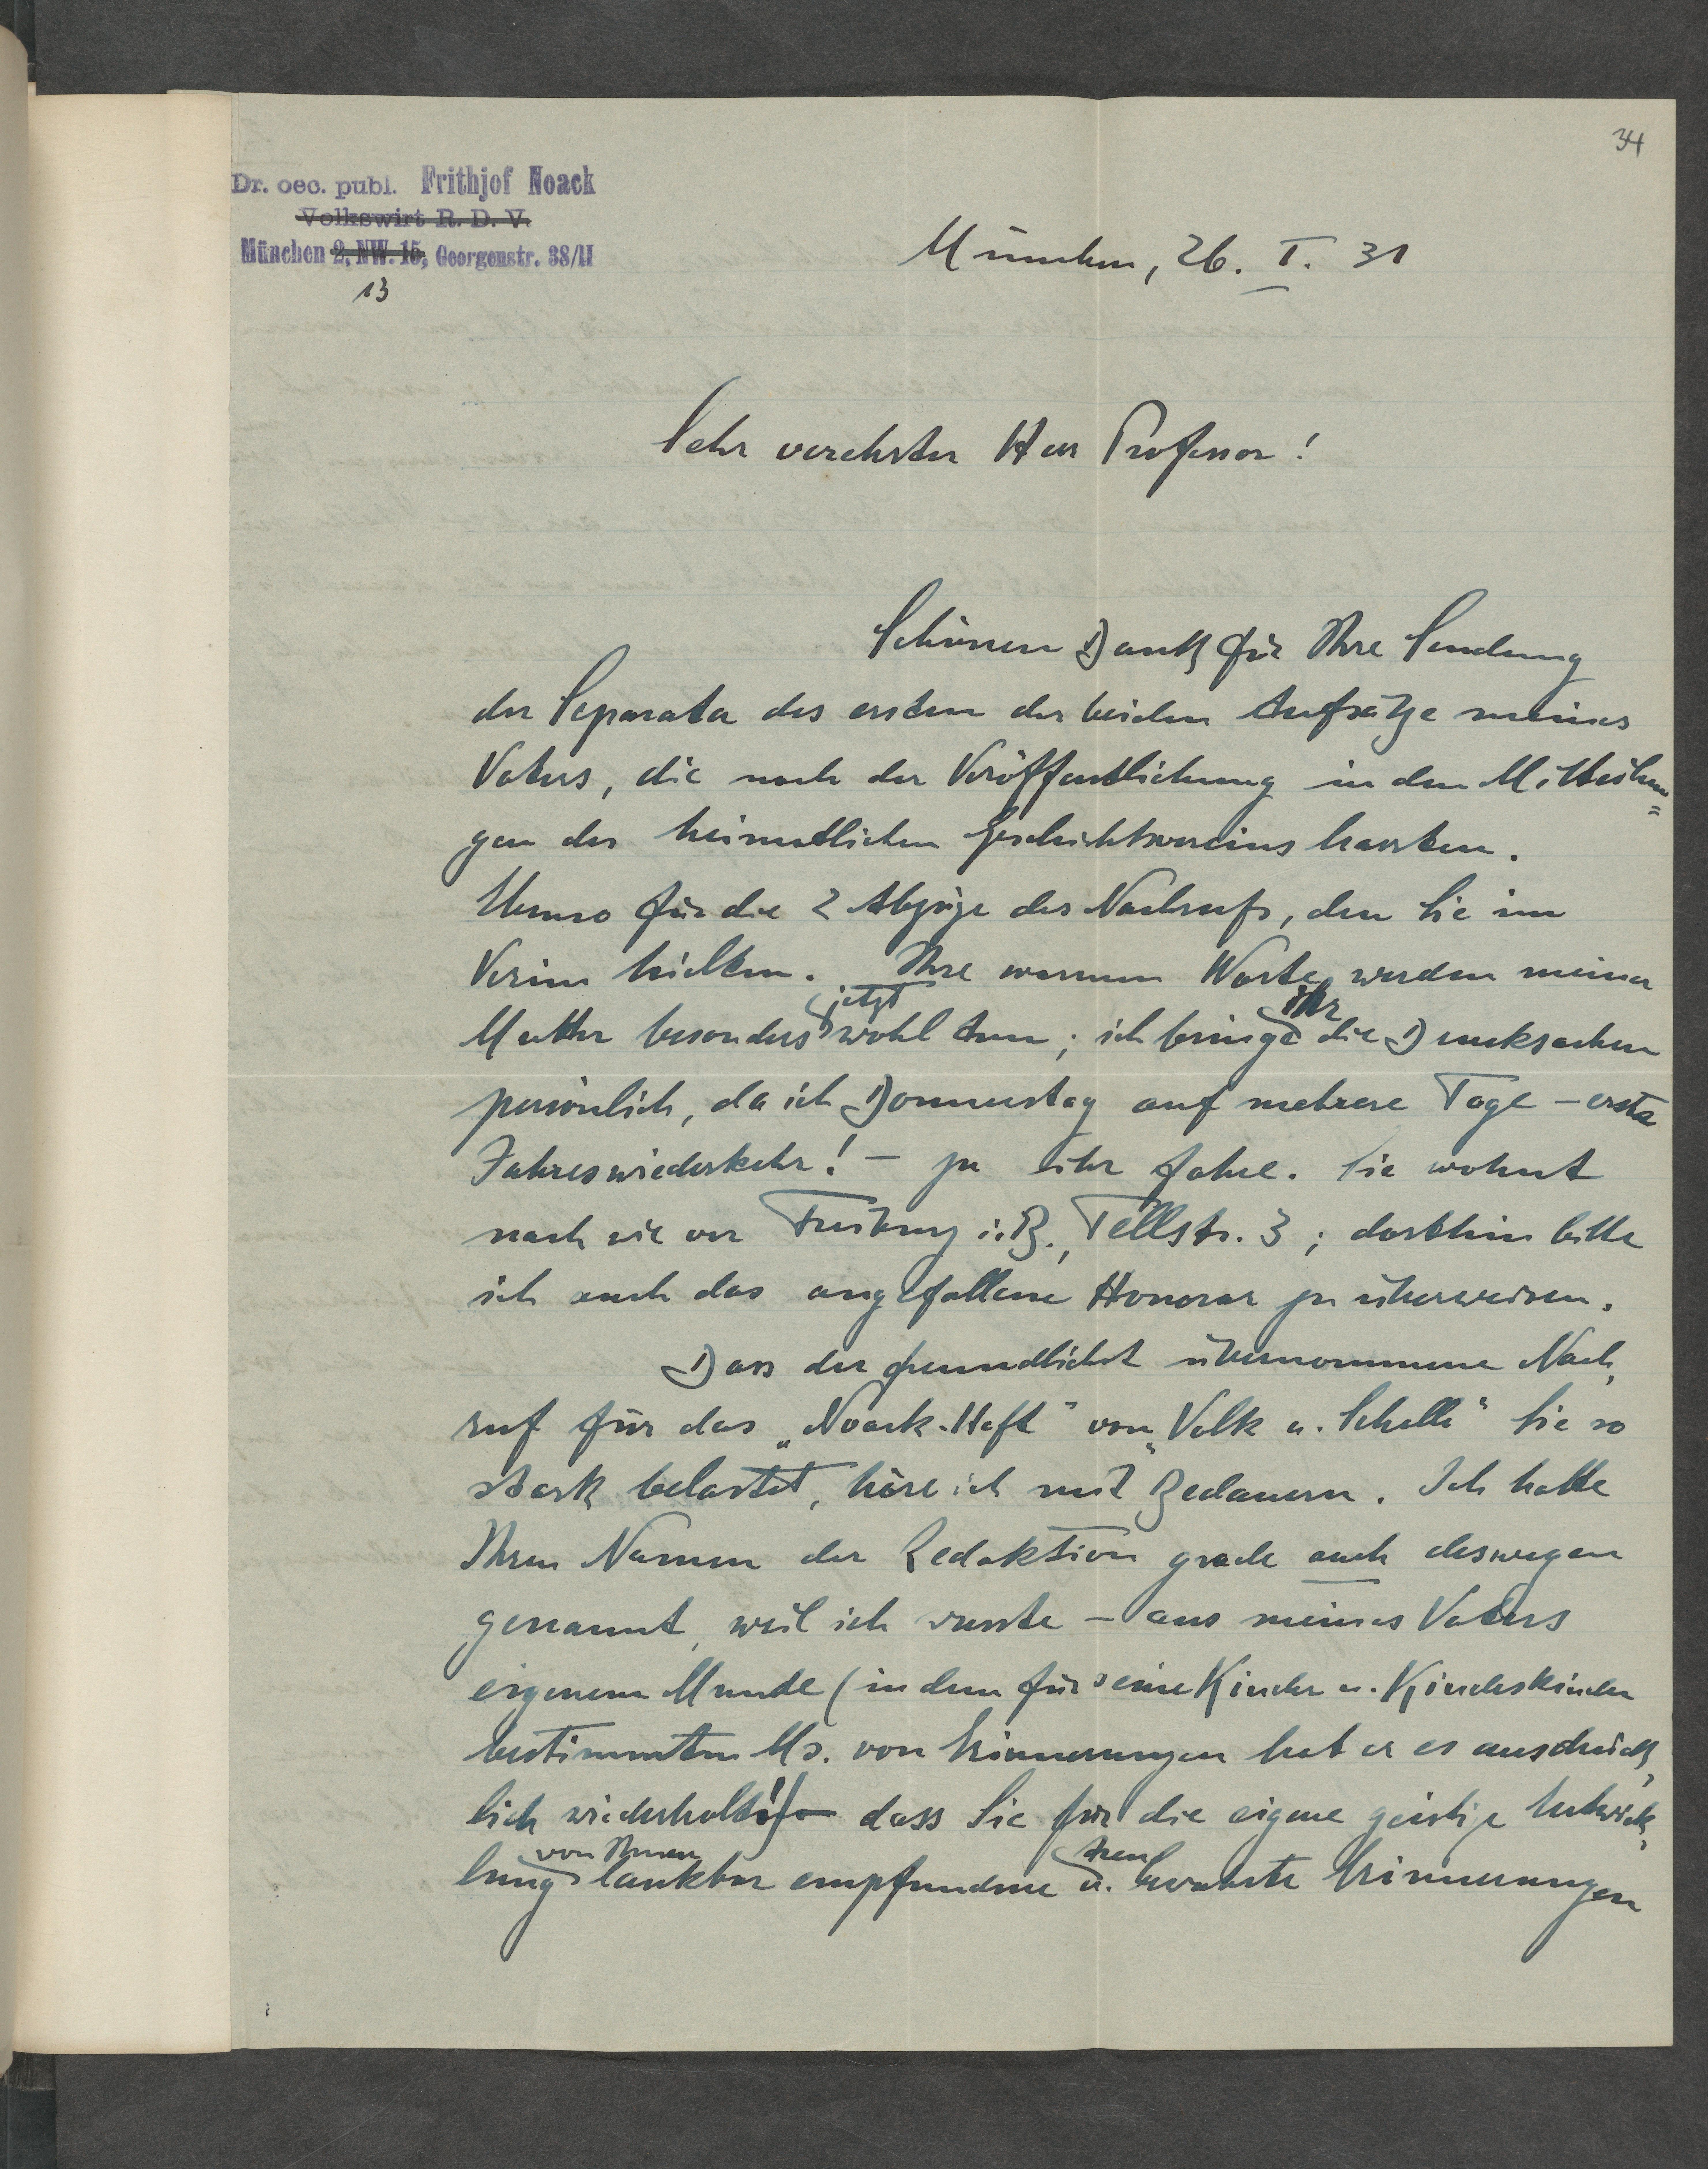 34
Dr. oec. publ. Frithjof Noack
Volkswirt R. D. V.
München 2, NW. 15, Georgenstr. 38/II
13
München, 26. I. 31
Sehr verehrter Herr Professor!
Schönen Dank für Ihre Sendung
der Separata des ersten der beiden Aufsätze meines
Vaters, die noch der Veröffentlichung in den Mitteilun=
gen des heimatlichen Geschichtsvereins harrten.
Ebenso für die 2 Abzüge des Nachrufs, den Sie im
Verein hielten. Ihre warmen Worte werden meiner
Mutter besonders jetzt wohl tun; ich bringe ihr die Drucksachen
persönlich, da ich Donnerstag auf mehrere Tage – erste
Jahreswiederkehr! – zu ihr fahre. Sie wohnt
nach wie vor Freiburg i. B., Tellstr. 3; dorthin bitte
ich auch das angefallene Honorar zu überweisen.
Dass der freundlichst übernommene Nach-
ruf für das „Noack-Heft" von „Volk u. Scholle" Sie so
stark belastet, höre ich mit Bedauern. Ich hatte
Ihren Namen der Redaktion grade auch deswegen
genannt, weil ich wusste – aus meines Vaters
eigenem Munde (in dem für seine Kinder u. Kindeskinder
bestimmten Ms. von Erinnerungen hat er es ausdrück-
lich wiederholt!) – dass Sie für die eigene geistige Entwick-
lung von Ihnen dankbar empfundene u. treu bewahrte Erinnerungen